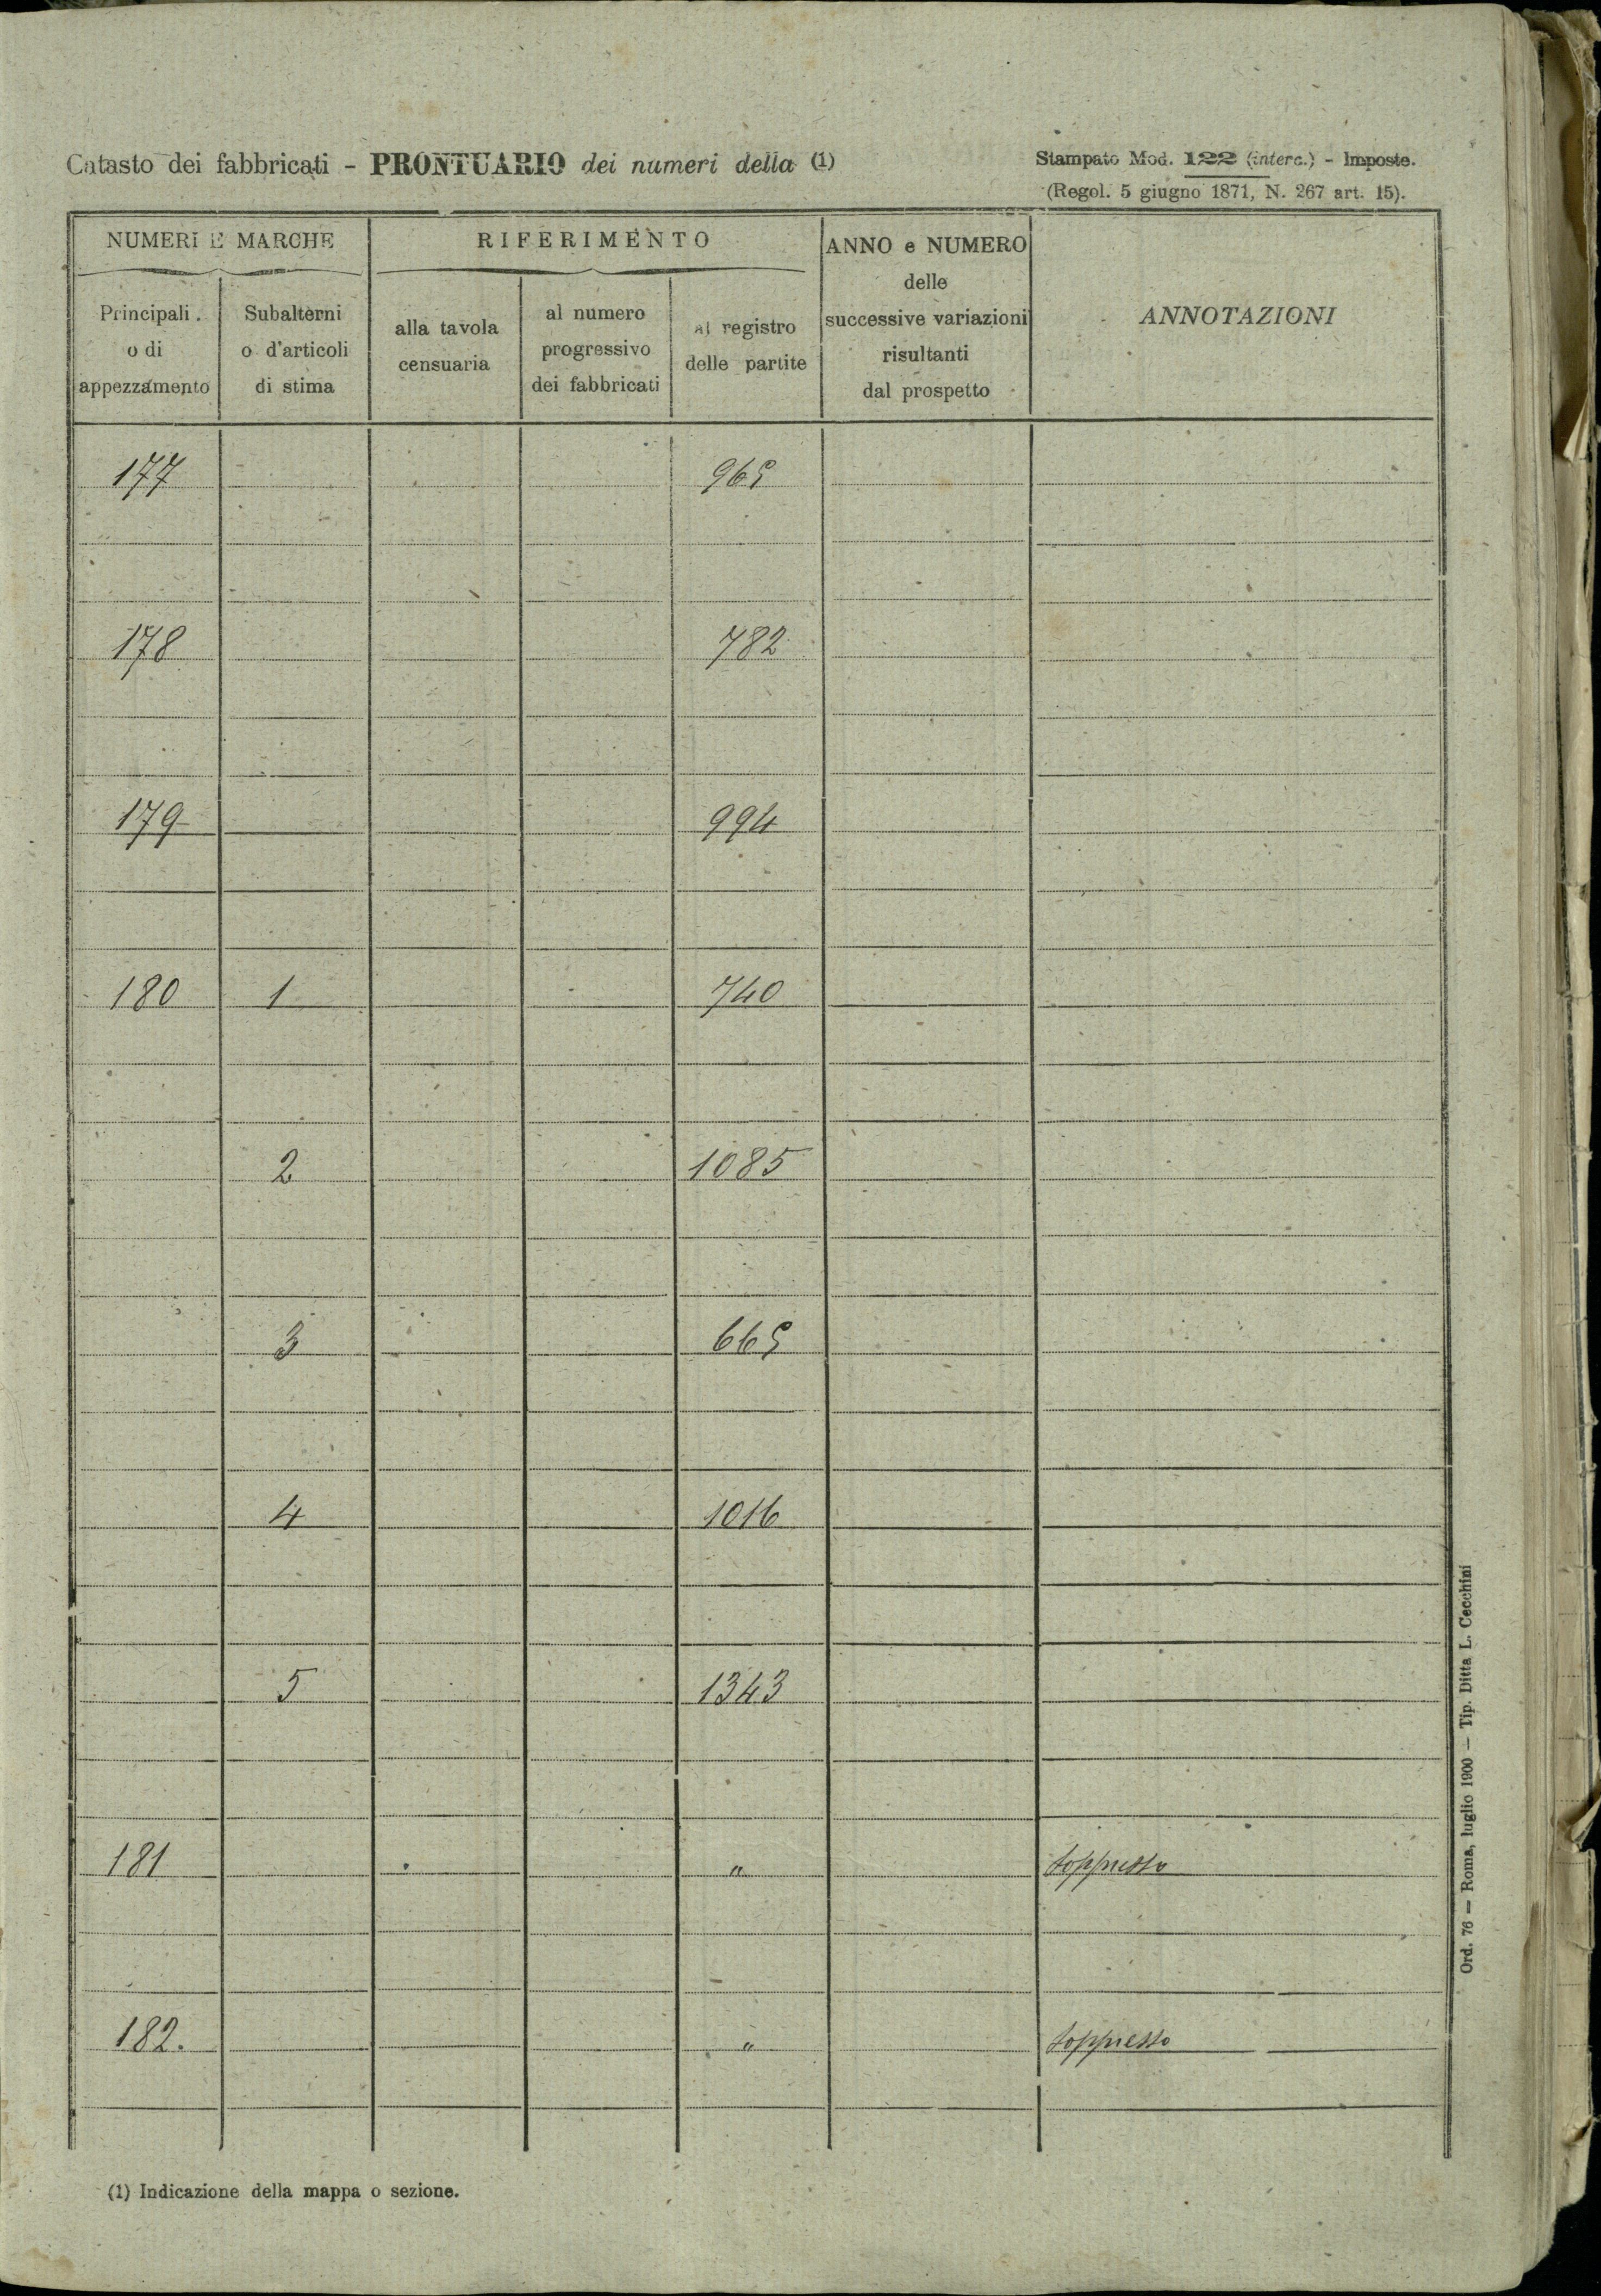 Catasto dei fabbricati - PRONTUARIO dei numeri della (1)
Stampato Mod. 122 (interc.) - Imposte.
(Regol. 5 giugno 1871, N. 267 art. 15).
NUMERI E MARCHE
RIFERIMENTO
ANNO e NUMERO
delle
successive variazioni
risultanti
dal prospetto
ANNOTAZIONI
Principali
o di
appezzamento
Subalterni
o d'articoli
di stima
alla tavola
censuaria
al numero
progressivo
dei fabbricati
al registro
delle partite
177 965
178 782
179 994
180 1 740
2 1085
3 665
4 1016
5 1343
181 " soppresso
182. " soppresso
(1) Indicazione della mappa o sezione.
Ord. 76 — Roma, luglio 1900 — Tip. Ditta L. Cecchini